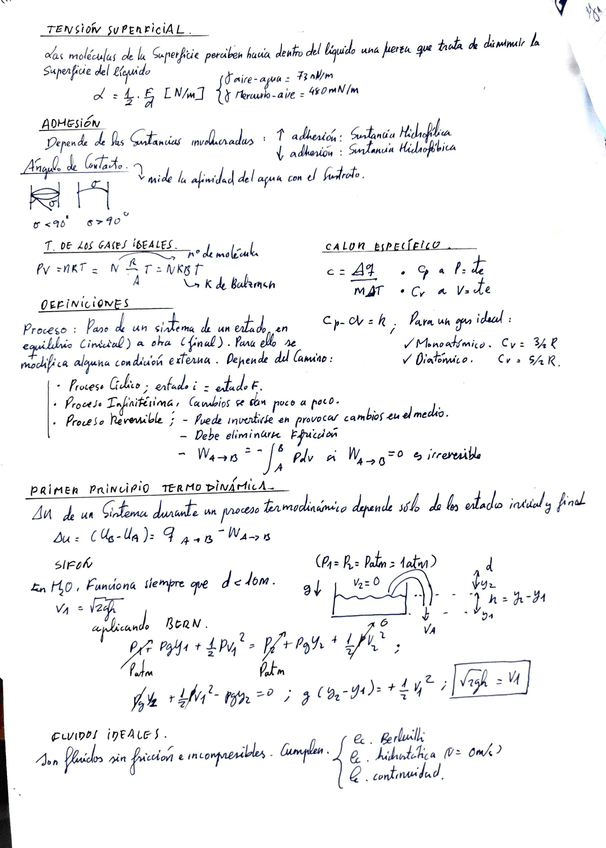 TENSIÓN SUPERFICIAL.
Las moléculas de la Superficie perciben hacia dentro del líquido una fuerza que trata de disminuir la
Superficie del líquido
α = 1/2 · F/d [N/m] { γ aire-agua = 73 mN/m
γ Mercurio-aire = 480 mN/m
ADHESIÓN
Depende de las Sustancias involucradas: ↑ adhesión: Sustancia Hidrofílica
↓ adhesión: Sustancia Hidrofóbica
Ángulo de Contacto.
mide la afinidad del agua con el Sustrato.
σ < 90° σ > 90°
T. DE LOS GASES IDEALES.
nº de molécula
PV = nRT = N R/A T = N KB T
K de Boltzman
CALOR ESPECÍFICO.
c = Δq / MΔT • Cp a P = cte
• Cv a V = cte
Cp - Cv = R; Para un gas ideal:
✓ Monoatómico. Cv = 3/2 R
✓ Diatómico. Cv = 5/2 R.
DEFINICIONES
Proceso: Paso de un sistema de un estado, en
equilibrio (inicial) a otra (final). Para ello se
modifica alguna condición externa. Depende del Camino:
• Proceso Cíclico; estado i = estado F.
• Proceso Infinitésima, Cambios se dan poco a poco.
• Proceso Reversible; - Puede invertirse en provocar cambios en el medio.
- Debe eliminarse Fricción
- W A→B = - ∫ A B Pdv si W A→B = 0 es irreversible
PRIMER PRINCIPIO TERMODINÁMICA.
Δu de un Sistema durante un proceso termodinámico depende sólo de los estados inicial y final
Δu = (UB - UA) = q A→B - W A→B
SIFÓN
(P1 = P2 = Patm = 1atm)
En H2O, Funciona siempre que d < 10m.
V1 = √2gh
g↓ V2 = 0 d y2 h = y2 - y1 y1 VA
aplicando BERN.
P1 + ρgy1 + 1/2 ρv1² = P2 + ρgy2 + 1/2 ρv2² ;
Patm Patm
ρgy1 + 1/2 ρv1² - ρgy2 = 0 ; g (y2 - y1) = + 1/2 v1² ; √2gh = V1
FLUIDOS IDEALES.
Son fluidos sin fricción e incompresibles. Cumplen. { Ec. Bernuilli
Ec. hidrostática (v = 0m/s)
Ec. continuidad.